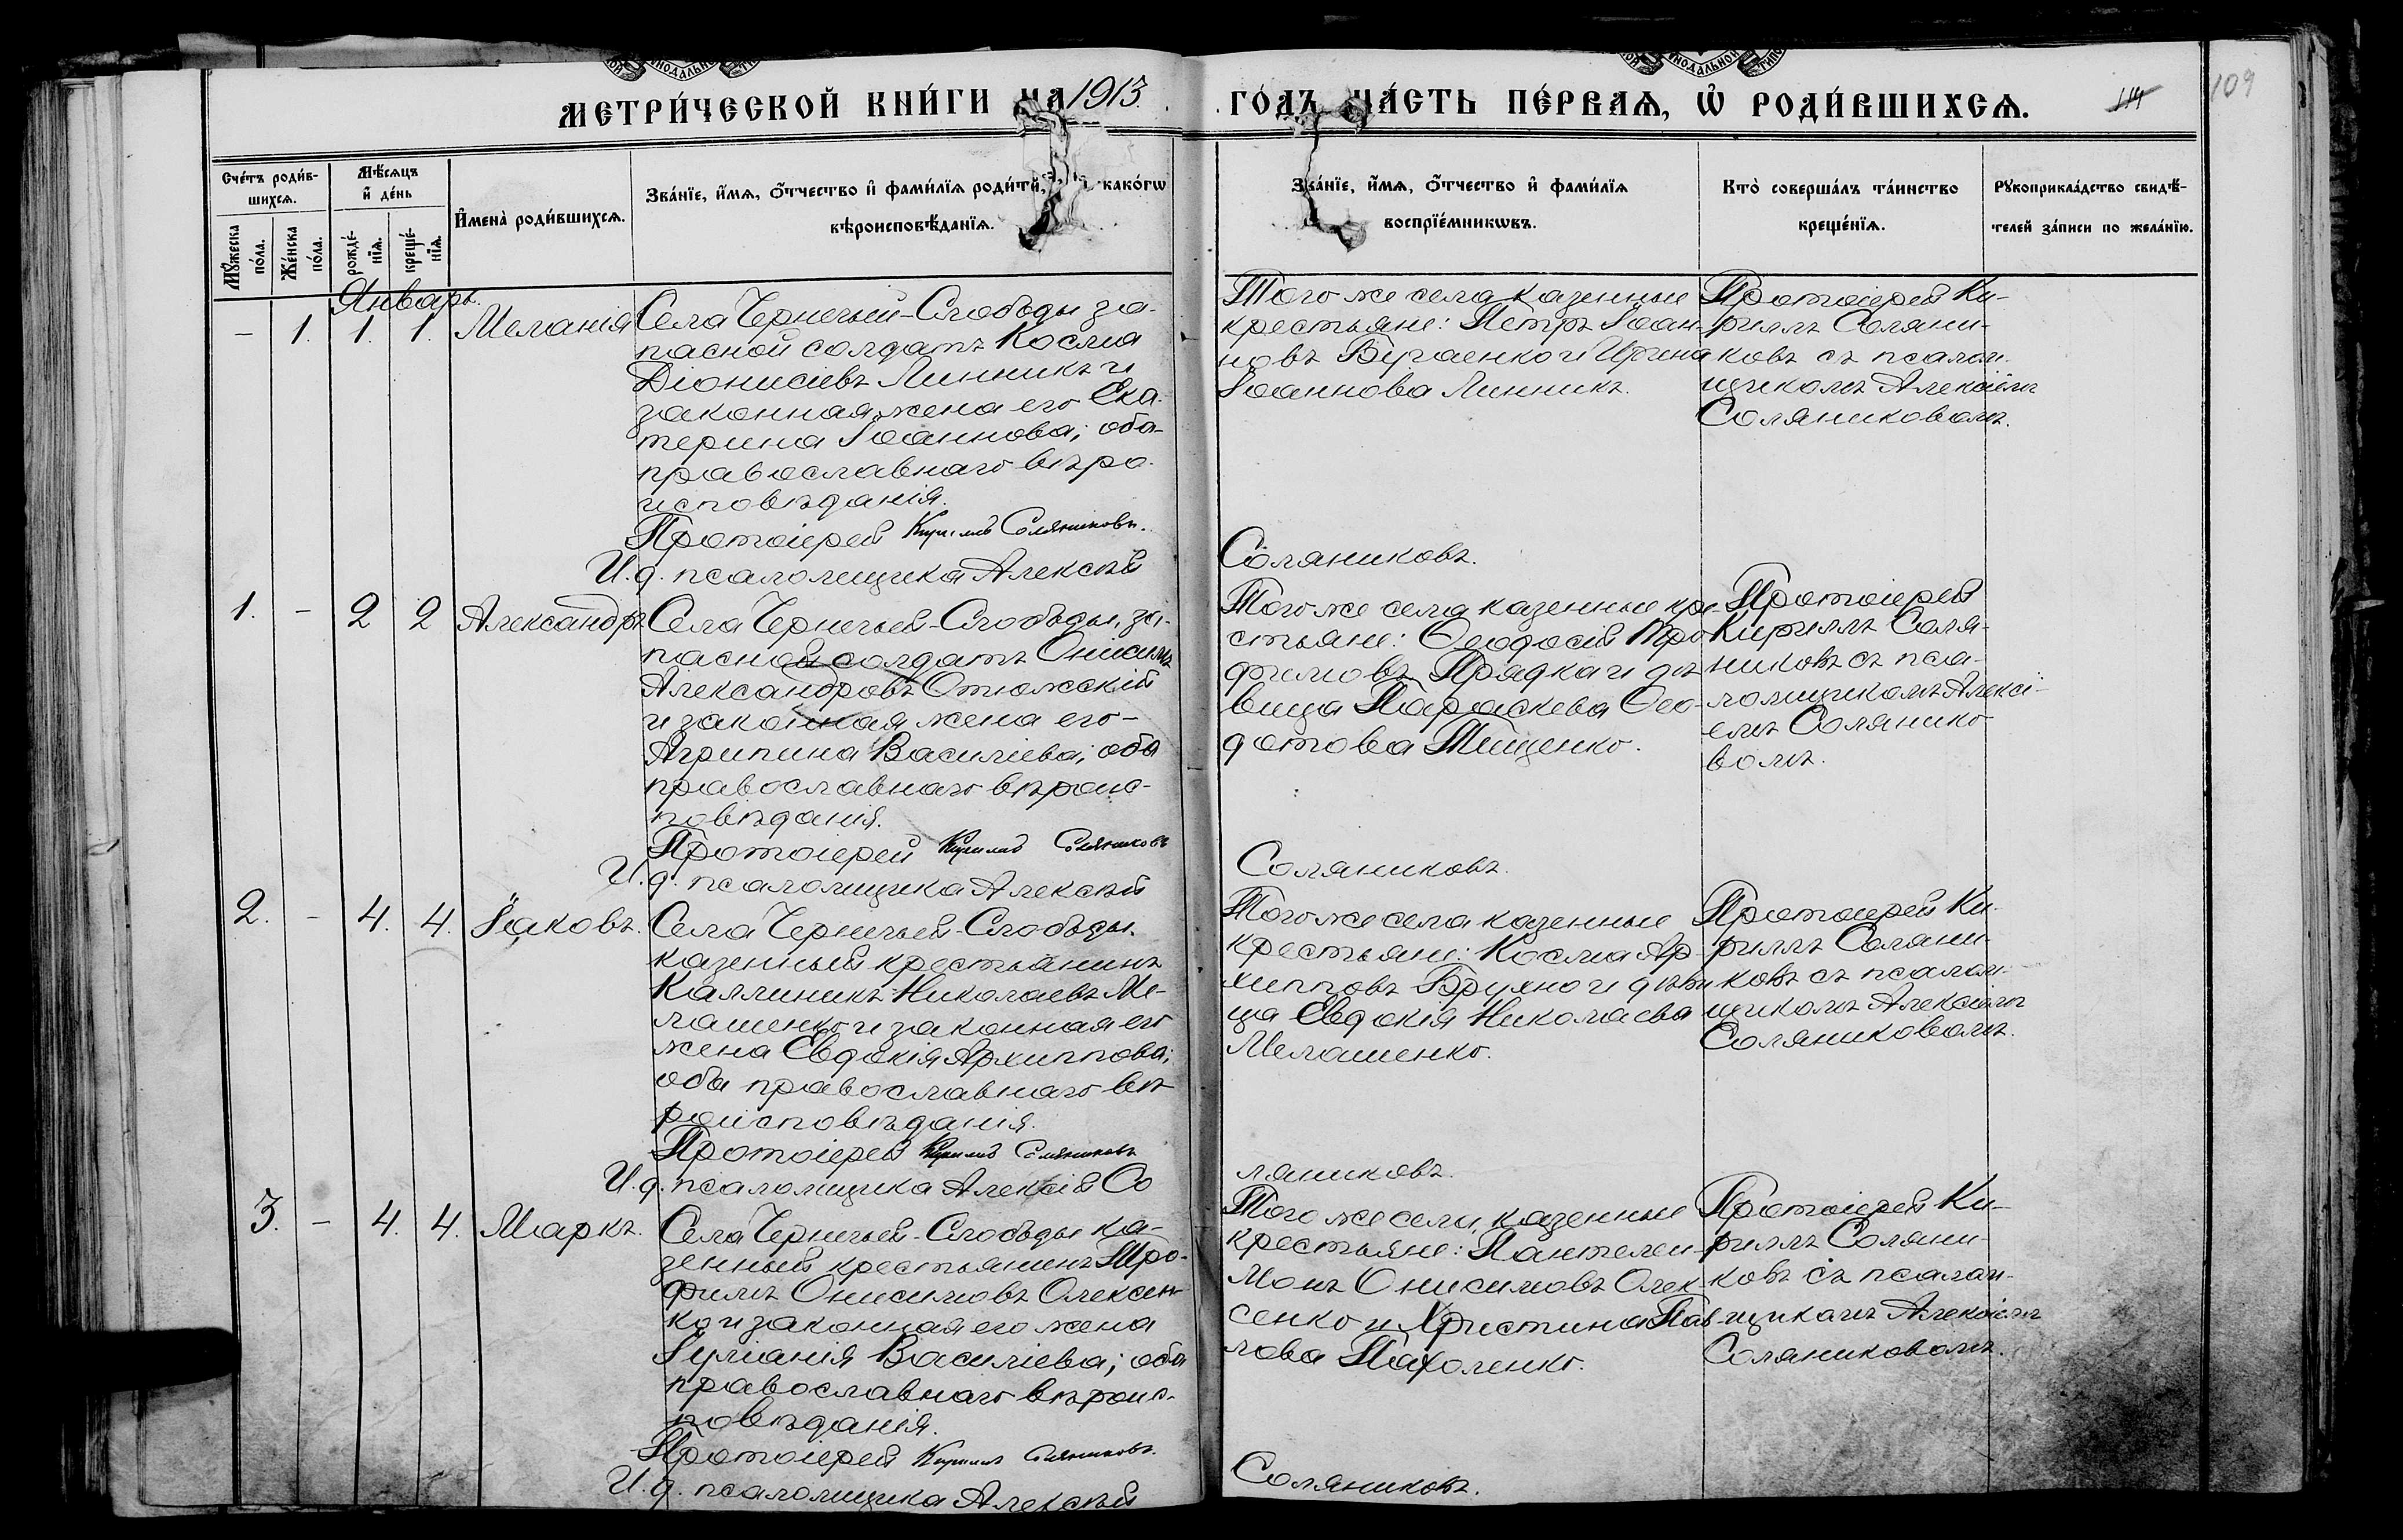 МЕТРИ́ЧЕСКОЙ КНИ́ГИ НА 1913. ГО́ДЪ ЧА́СТЬ ПЕ́РВАѦ, Ѡ҆ РОДИ́ВШИХСѦ.
114
109
Сче́тъ роди́в-
шихсѧ.
Мѣ́сѧцъ
и҆ де́нь
Мꙋ́жеска
по́ла.
Же́нска
по́ла.
рожде́-
нїѧ.
креще́-
нїѧ.
И҆мена̀ роди́вшихсѧ.
Зва́нїе, и҆́мѧ, ѻ҆́тчество и҆ фами́лїѧ роди́т какѡ́гѡ
вѣроисповѣ́данїѧ.
Зва́нїе, и҆́мѧ, ѻ҆́тчество и҆ фами́лїѧ
воспрїе́мникѡвъ.
Кто̀ соверша́лъ та́инство
креще́нїѧ.
Рꙋкоприкла́дство свидѣ́-
телей за́писи по жела́нїю.
Январь.
— 1. 1. 1. Меланія
Села Чернечьей-Слободы за-
пасной солдатъ Косма
Діонисіевъ Линникъ и
законная жена его Ека-
терина Іоаннова; оба
православнаго вѣро-
исповѣданія.
Протоіерей Кириллъ Соляниковъ.
И. д. псаломщика Алексѣй
Того же села казенные
крестьяне: Петръ Іоан-
новъ Бугаенко и Ирина
Іоаннова Линникъ.
Соляниковъ.
Протоіерей Ки-
риллъ Соляни-
ковъ съ псалом-
щикомъ Алексіемъ
Соляниковомъ.
1. — 2 2 Александръ
Села Чернечьей-Слободы, за-
пасной солдатъ Онисимъ
Александровъ Отюжскій
и законная жена его-
Агрипина Василіева; оба
православнаго вѣроис-
повѣданія.
Протоіерей Кириллъ Соляниковъ
И. д. псаломщика Алексѣй
Того же села казенные кре-
стьяне: Ѳеодосій Тро-
фимовъ Прядка и дѣ
вица Параскева Ѳео-
дотова Тищенко.
Соляниковъ.
Протоіерей
Кириллъ Соля-
никовъ съ пса-
ломщикомъ Алексі-
емъ Солянико-
вомъ.
2. — 4. 4. Іаковъ.
Села Чернечьей-Слободы.
казенный крестьянинъ
Каллиникъ Николаевъ Ме-
лашенко и законная его
жена Евдокія Архиппова;
оба православнаго вѣ
роисповѣданія.
Протоіерей Кириллъ Соляниковъ
И. д. псаломщика Алексій Со
Того же села казенные
крестьяне: Косма Ар-
хипповъ Брухно и дѣви
ца Евдокія Николаева
Мелашенко.
ляниковъ.
Протоіерей Ки-
риллъ Соляни-
ковъ съ псалом-
щикомъ Алексіемъ
Соляниковомъ.
3. — 4. 4. Маркъ.
Села Чернечьей-Слободы ка-
зенный крестьянинъ Тро-
фимъ Онисимовъ Олексен
ко и законная его жена
Іуліанія Василіева; оба
православнаго вѣроис-
повѣданія.
Протоіерей Кириллъ Соляниковъ.
И. д. псаломщика Алексѣй
Того же села, казенные
крестьяне: Пантелеи-
монъ Онисимовъ Олек
сенко и Христина Пав
лова Пахоленко.
Соляниковъ.
Протоіерей Ки-
риллъ Соляни-
ковъ съ псалом-
щикомъ Алексіемъ
Соляниковомъ.